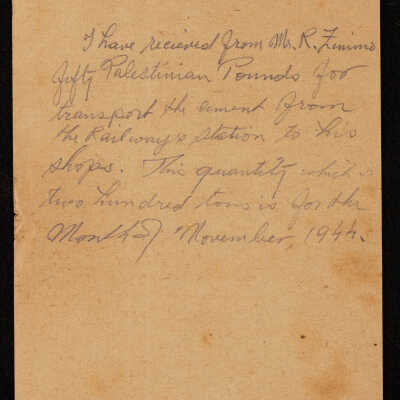 I have recieved from Mr. R. Zimmo
fifty Palestinian Pounds for
transport the cement from
the Railways station to his
shops. This quantity which is
two hundred tons is for the
Month of November, 1944.